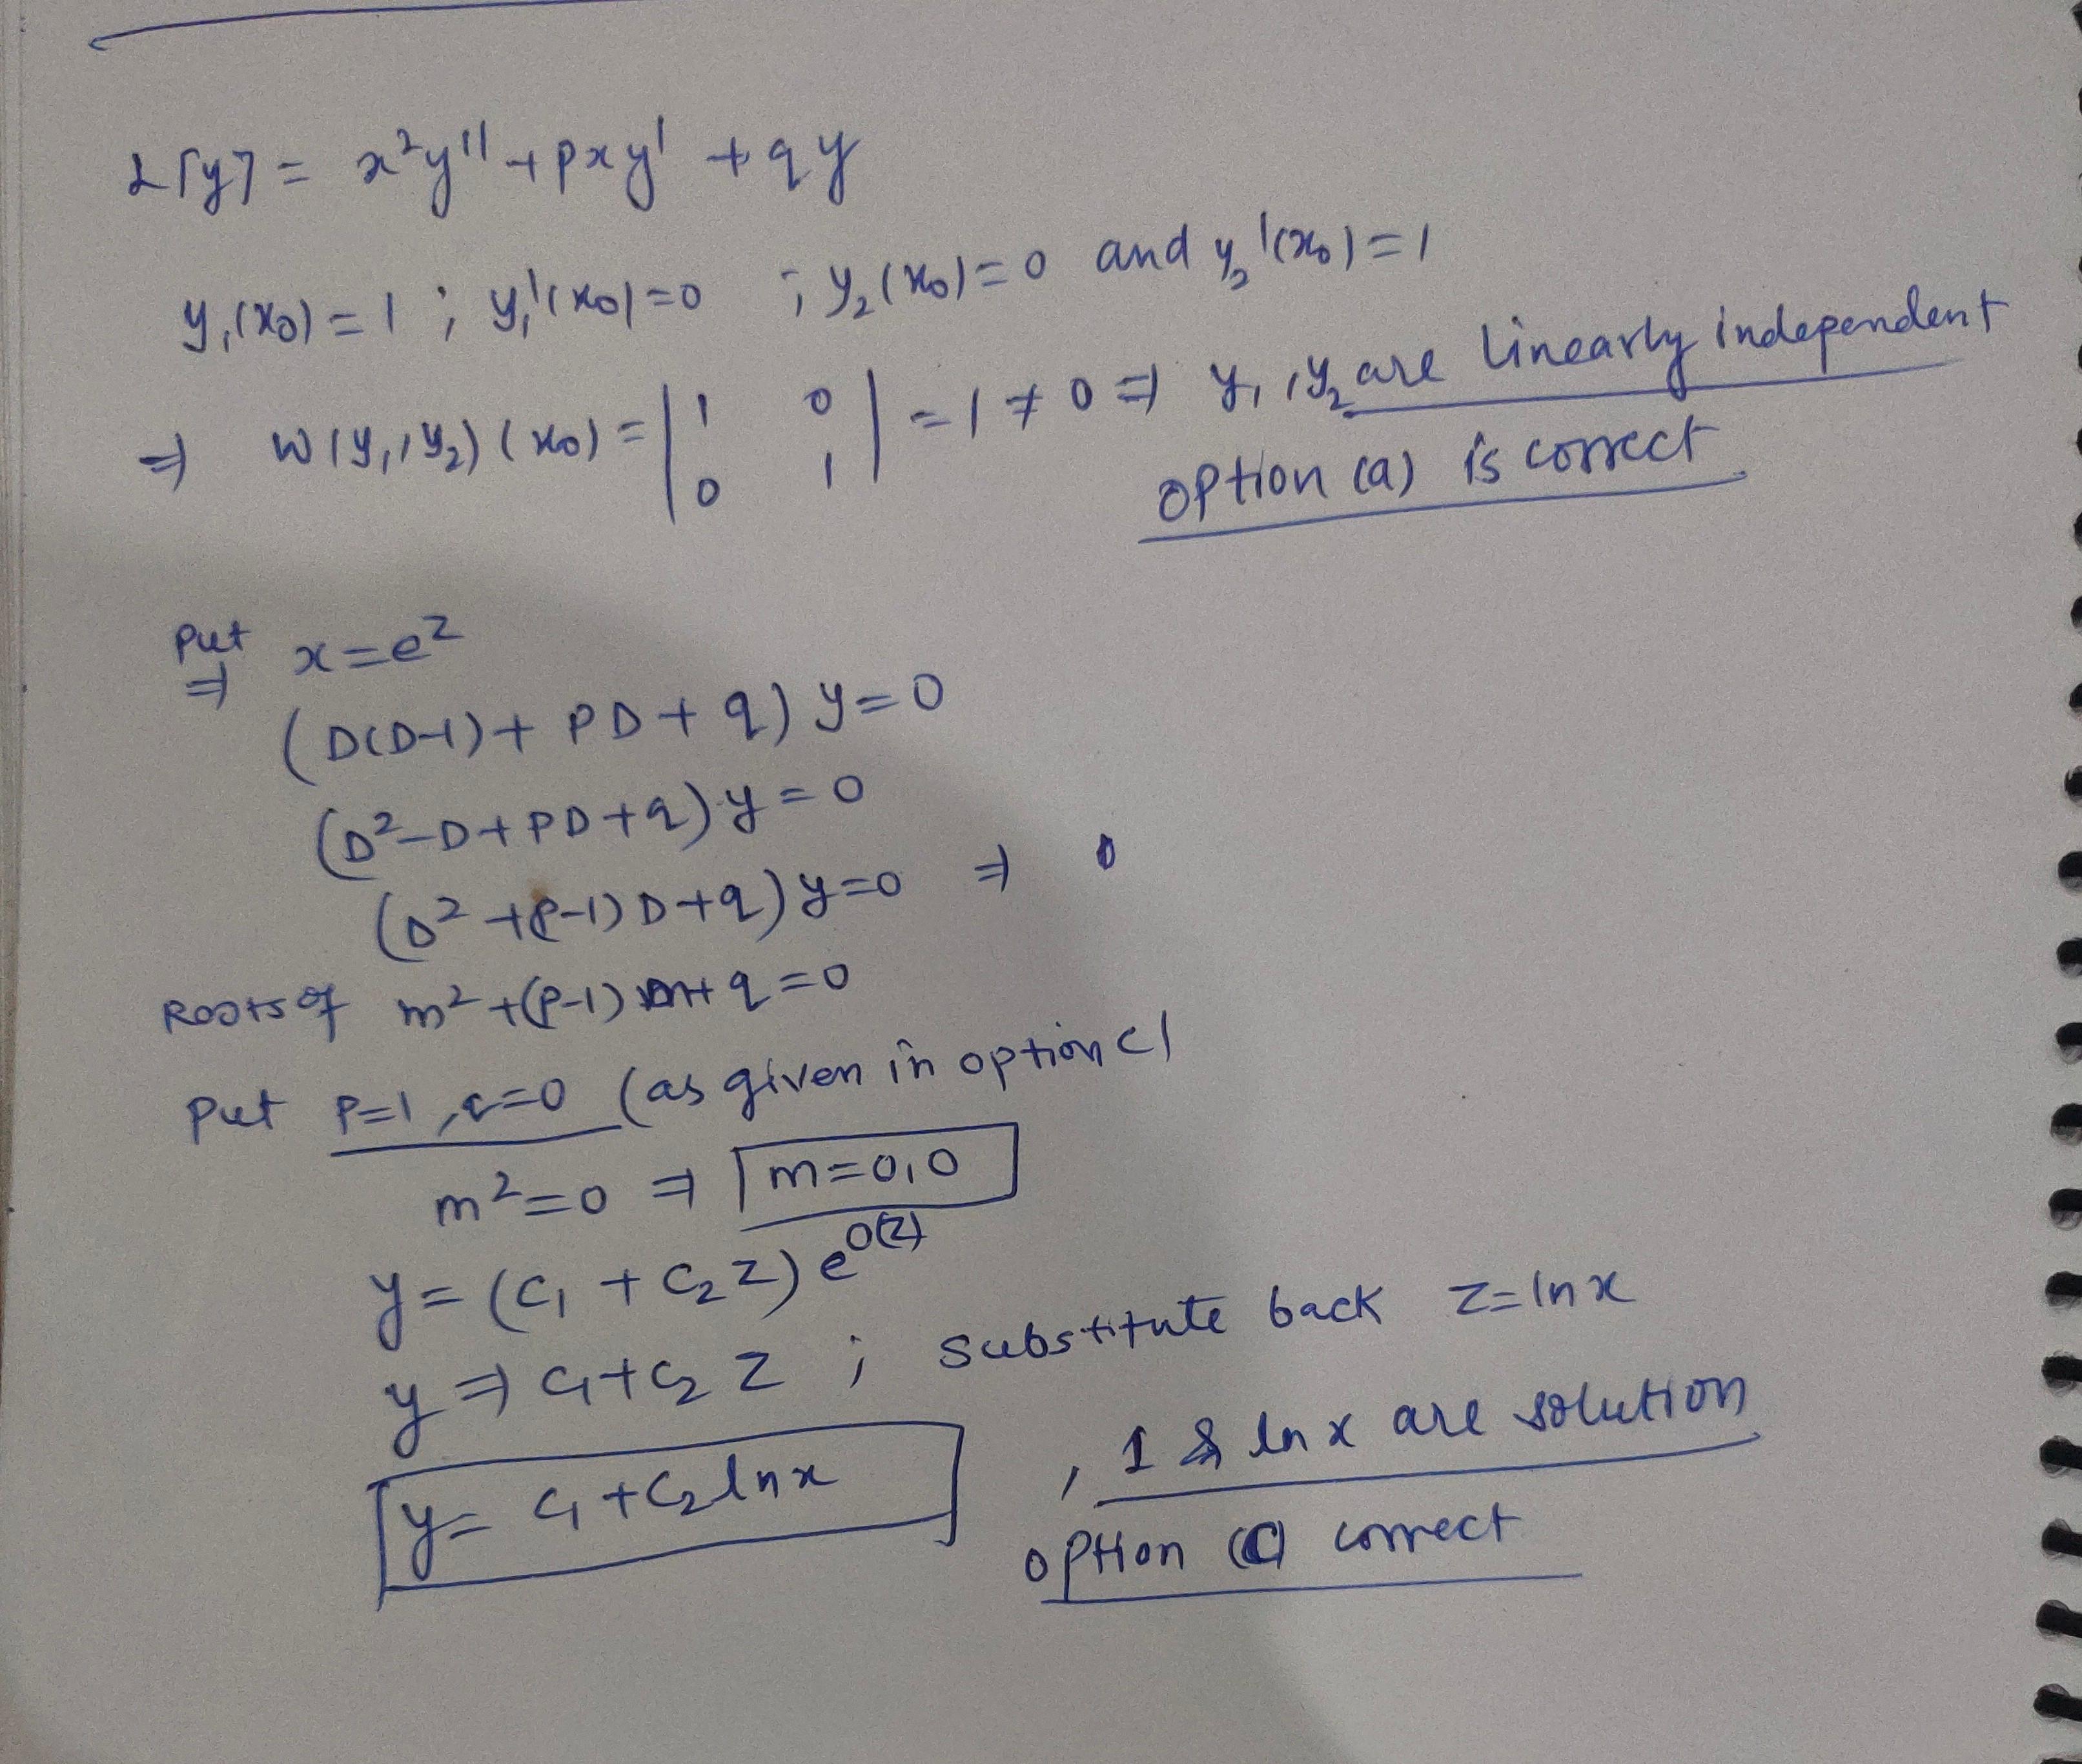 L[y] = x²y'' + pxy' + qy
y₁(x₀) = 1 ; y₁'(x₀) = 0 ; y₂(x₀) = 0 and y₂'(x₀) = 1
⇒ W(y₁, y₂)(x₀) = |1 0; 0 1| = 1 ≠ 0 ⇒ y₁, y₂ are linearly independent
option (a) is correct
Put x = e^z
⇒
(D(D-1) + PD + q) y = 0
(D² - D + PD + q) y = 0
(D² + (P-1) D + q) y = 0 ⇒
Roots of m² + (P-1) m + q = 0
Put P=1, q=0 (as given in option c)
m² = 0 ⇒ m = 0, 0
y = (C₁ + C₂ z) e^{0(z)}
y ⇒ C₁ + C₂ z ; substitute back z = ln x
y = C₁ + C₂ ln x , 1 & ln x are solution
option (C) correct